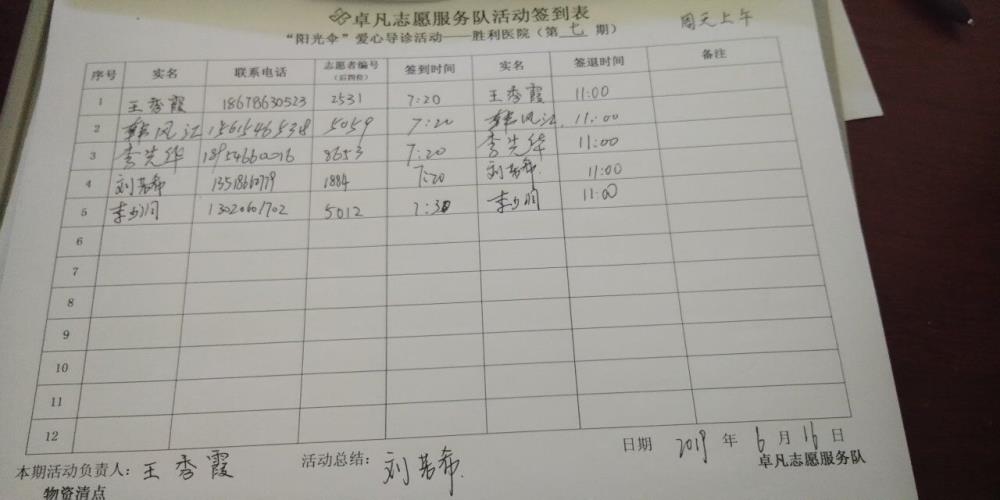 卓凡志愿服务队活动签到表
周天上午
“阳光伞”爱心导诊活动——胜利医院（第 七 期）
序号 实名 联系电话 志愿者编号（后四位） 签到时间 实名 签退时间 备注
1 王秀霞 18678630523 2531 7:20 王秀霞 11:00
2 韩风江 1561546538 5059 7:20 韩风江 11:00
3 李先华 18954660016 8653 7:20 李先华 11:00
4 刘若希 13518660779 1884 7:20 刘若希 11:00
5 13020601702 5012 7:30 11:00
6
7
8
9
10
11
12
日期 2019 年 6 月 16 日
本期活动负责人：王秀霞 活动总结：刘若希 卓凡志愿服务队
物资清点